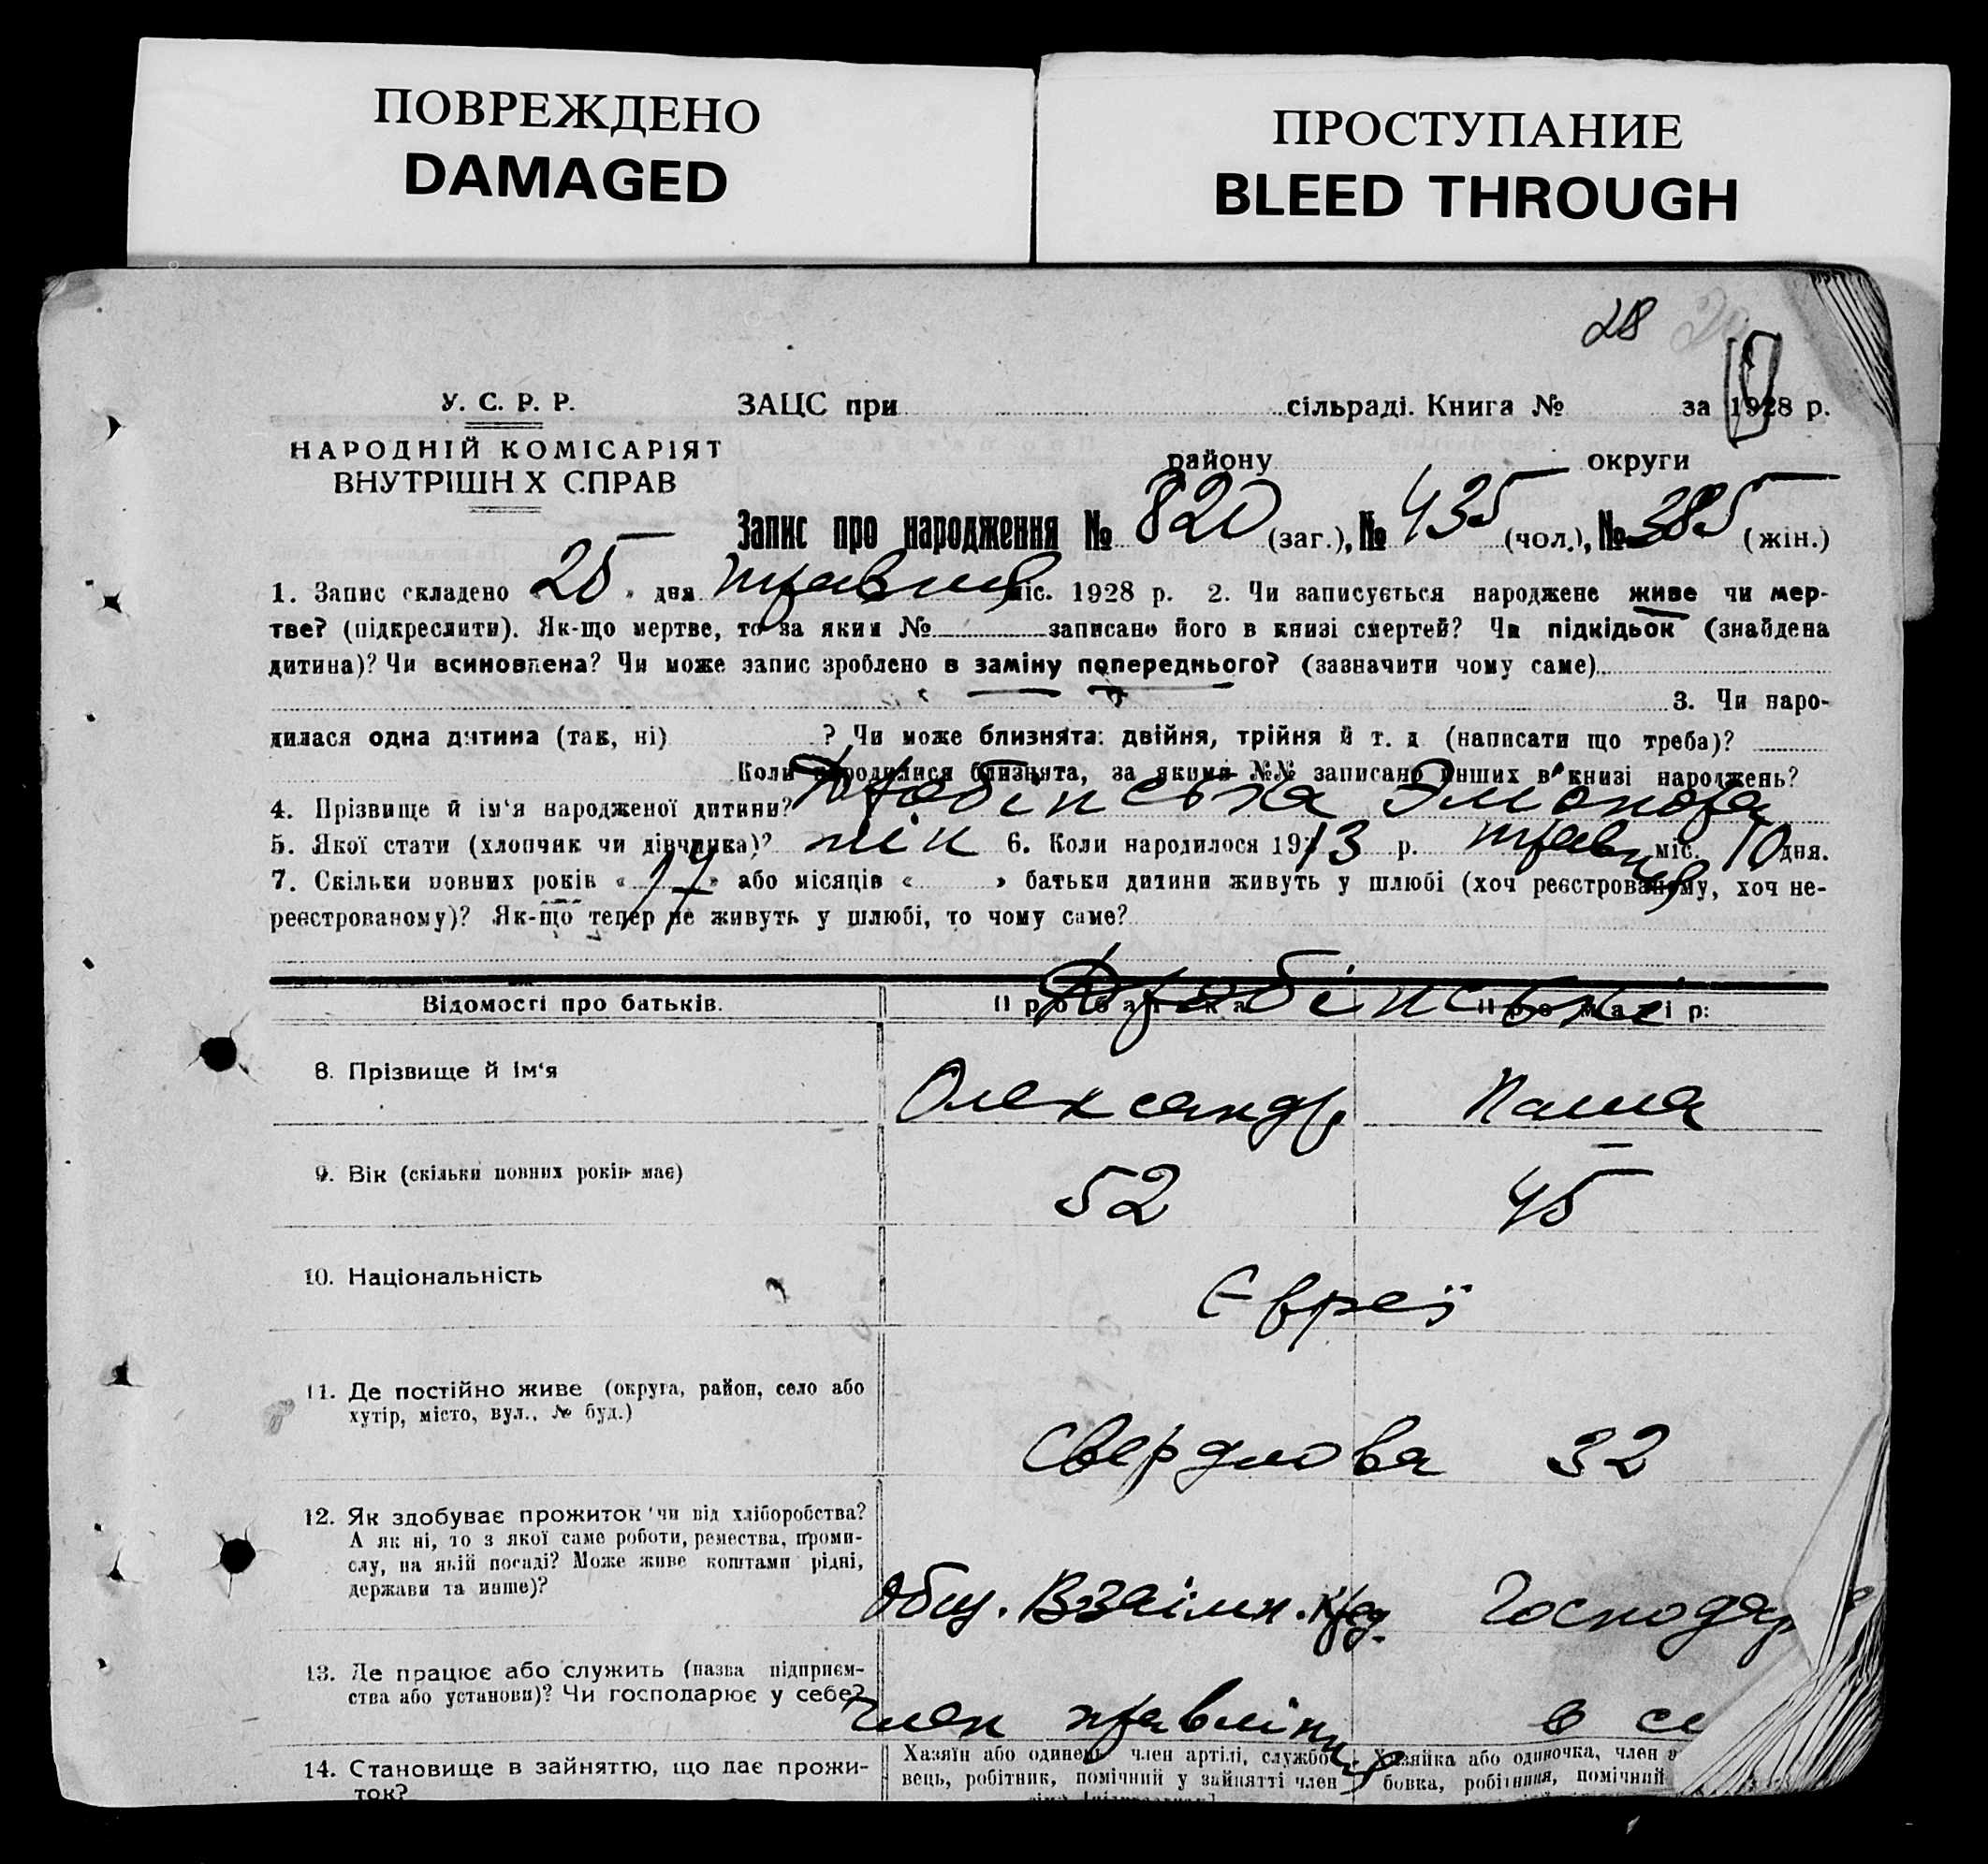 ПОВРЕЖДЕНО
DAMAGED
ПРОСТУПАНИЕ
BLEED THROUGH
28
У. С. Р. Р.
НАРОДНІЙ КОМІСАРІЯТ
ВНУТРІШН Х СПРАВ
ЗАЦС при сільраді. Книга № за 1928 р.
району округи
Запис про народження № 820 (заг.), № 435 (чол.), № 385 (жін.)
1. Запис складено 25 » дня травня міс. 1928 р. 2. Чи записується народжене живе чи мер-
тве? (підкреслити). Як-що мертве, то за яким № записано його в книзі смертей? Чи підкідьок (знайдена
дитина)? Чи всиновлена? Чи може запис зроблено в заміну попереднього? (зазначити чому саме)
3. Чи наро-
дилася одна дитина (так, ні) ? Чи може близнята: двійня, трійня й т. д (написати що треба)?
Коли народилися близнята, за якими №№ записано инших в книзі народжень?
4. Прізвище й ім‘я народженої дитини?
5. Якої статі (хлопчик чи дівчинка)? жін 6. Коли народилося 1913 р. травня міс. 10 дня.
7. Скільки повних років « 17 » або місяців « » батьки дитини живуть у шлюбі (хоч реєстрованому, хоч не-
реєстрованому)? Як-що тепер не живуть у шлюбі, то чому саме?
Відомості про батьків. Про батька Про матір:
8. Прізвище й ім‘я
Олександр Паша
9. Вік (скільки повних років має)
52 45
10. Національність
Євреї
11. Де постійно живе (округа, район, село або
хутір, місто, вул., № буд.)
Свердлова 32
12. Як здобуває прожиток чи від хліборобства?
А як ні, то з якої саме роботи, ремества, проми-
слу, на якій посаді? Може живе коштами рідні,
держави та инше)?
Общ. Взаімн. Кред. Господар
13. Де працює або служить (назва підприєм-
ства або установи)? Чи господарює у себе?
Член правління в се
14. Становище в зайняттю, що дає прожи-
ток?
Хазяїн або одинець, член артілі, службо
вець, робітник, помічний у зайнятті член
Хазяйка або одиночка, член а
бовка, робітниця, помічний